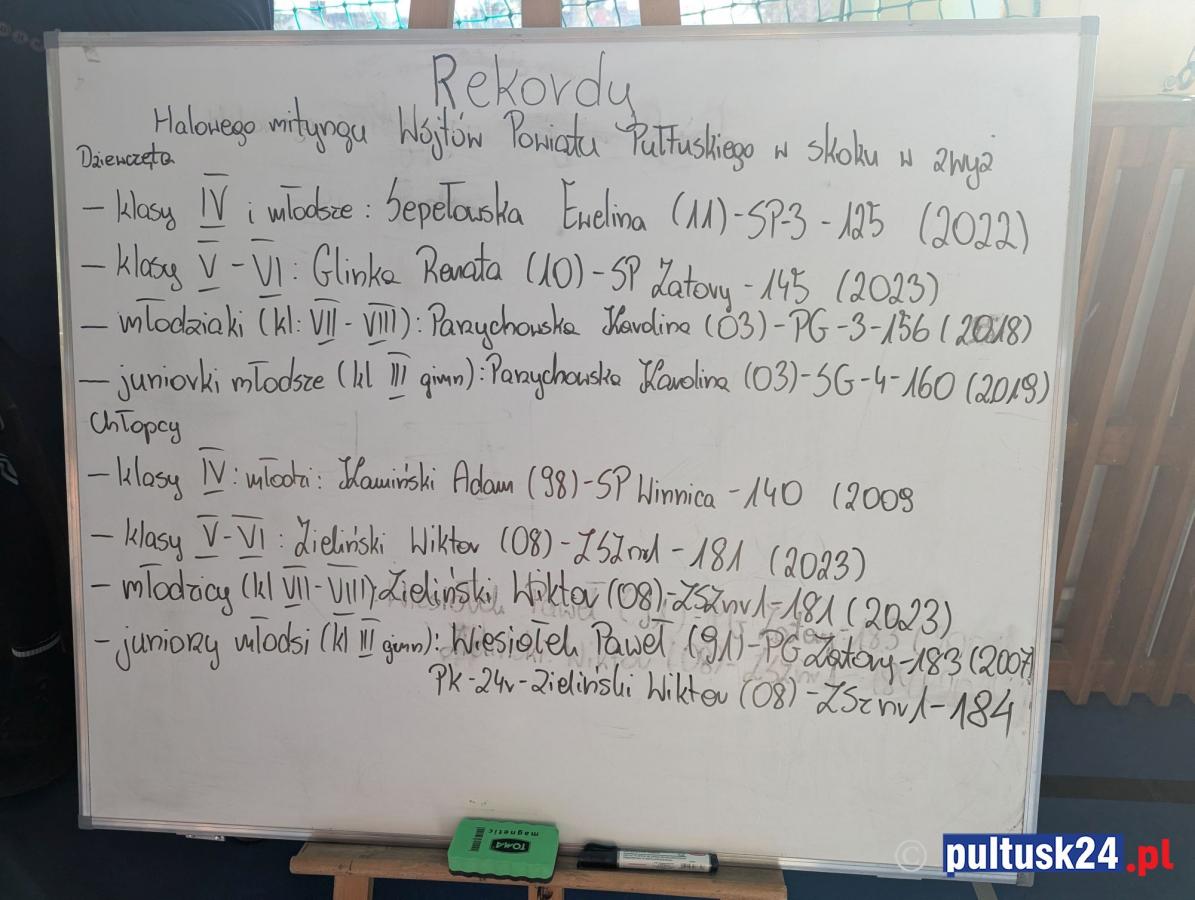 Rekordy
Halowego mityngu Wójtów Powiatu Pułtuskiego w skoku w zwyż
Dziewczęta
- klasy IV i młodsze: Sepełowska Ewelina (11)-SP-3-125 (2022)
- klasy V-VI: Glinka Renata (10)-SP Zatory-145 (2023)
- młodziaki (kl: VII-VIII): Parzychowska Karolina (03)-PG-3-156 (2018)
- juniorki młodsze (kl III gimn): Parzychowska Karolina (03)-SG-4-160 (2019)
Chłopcy
- klasy IV: młodzi: Kamiński Adam (98)-SP Winnica-140 (2009
- klasy V-VI: Zieliński Wiktor (08)-ZSZnr1-181 (2023)
- młodzicy (kl VII-VIII): Zieliński Wiktor (08)-ZSZnr1-181 (2023)
- juniorzy młodsi (kl III gimn): Wiesiołek Paweł (91)-PG Zatory-183 (2007)
PK-24r-Zieliński Wiktor (08)-ZSz nr 1-184
TOMA
magnetic
© pultusk24.pl